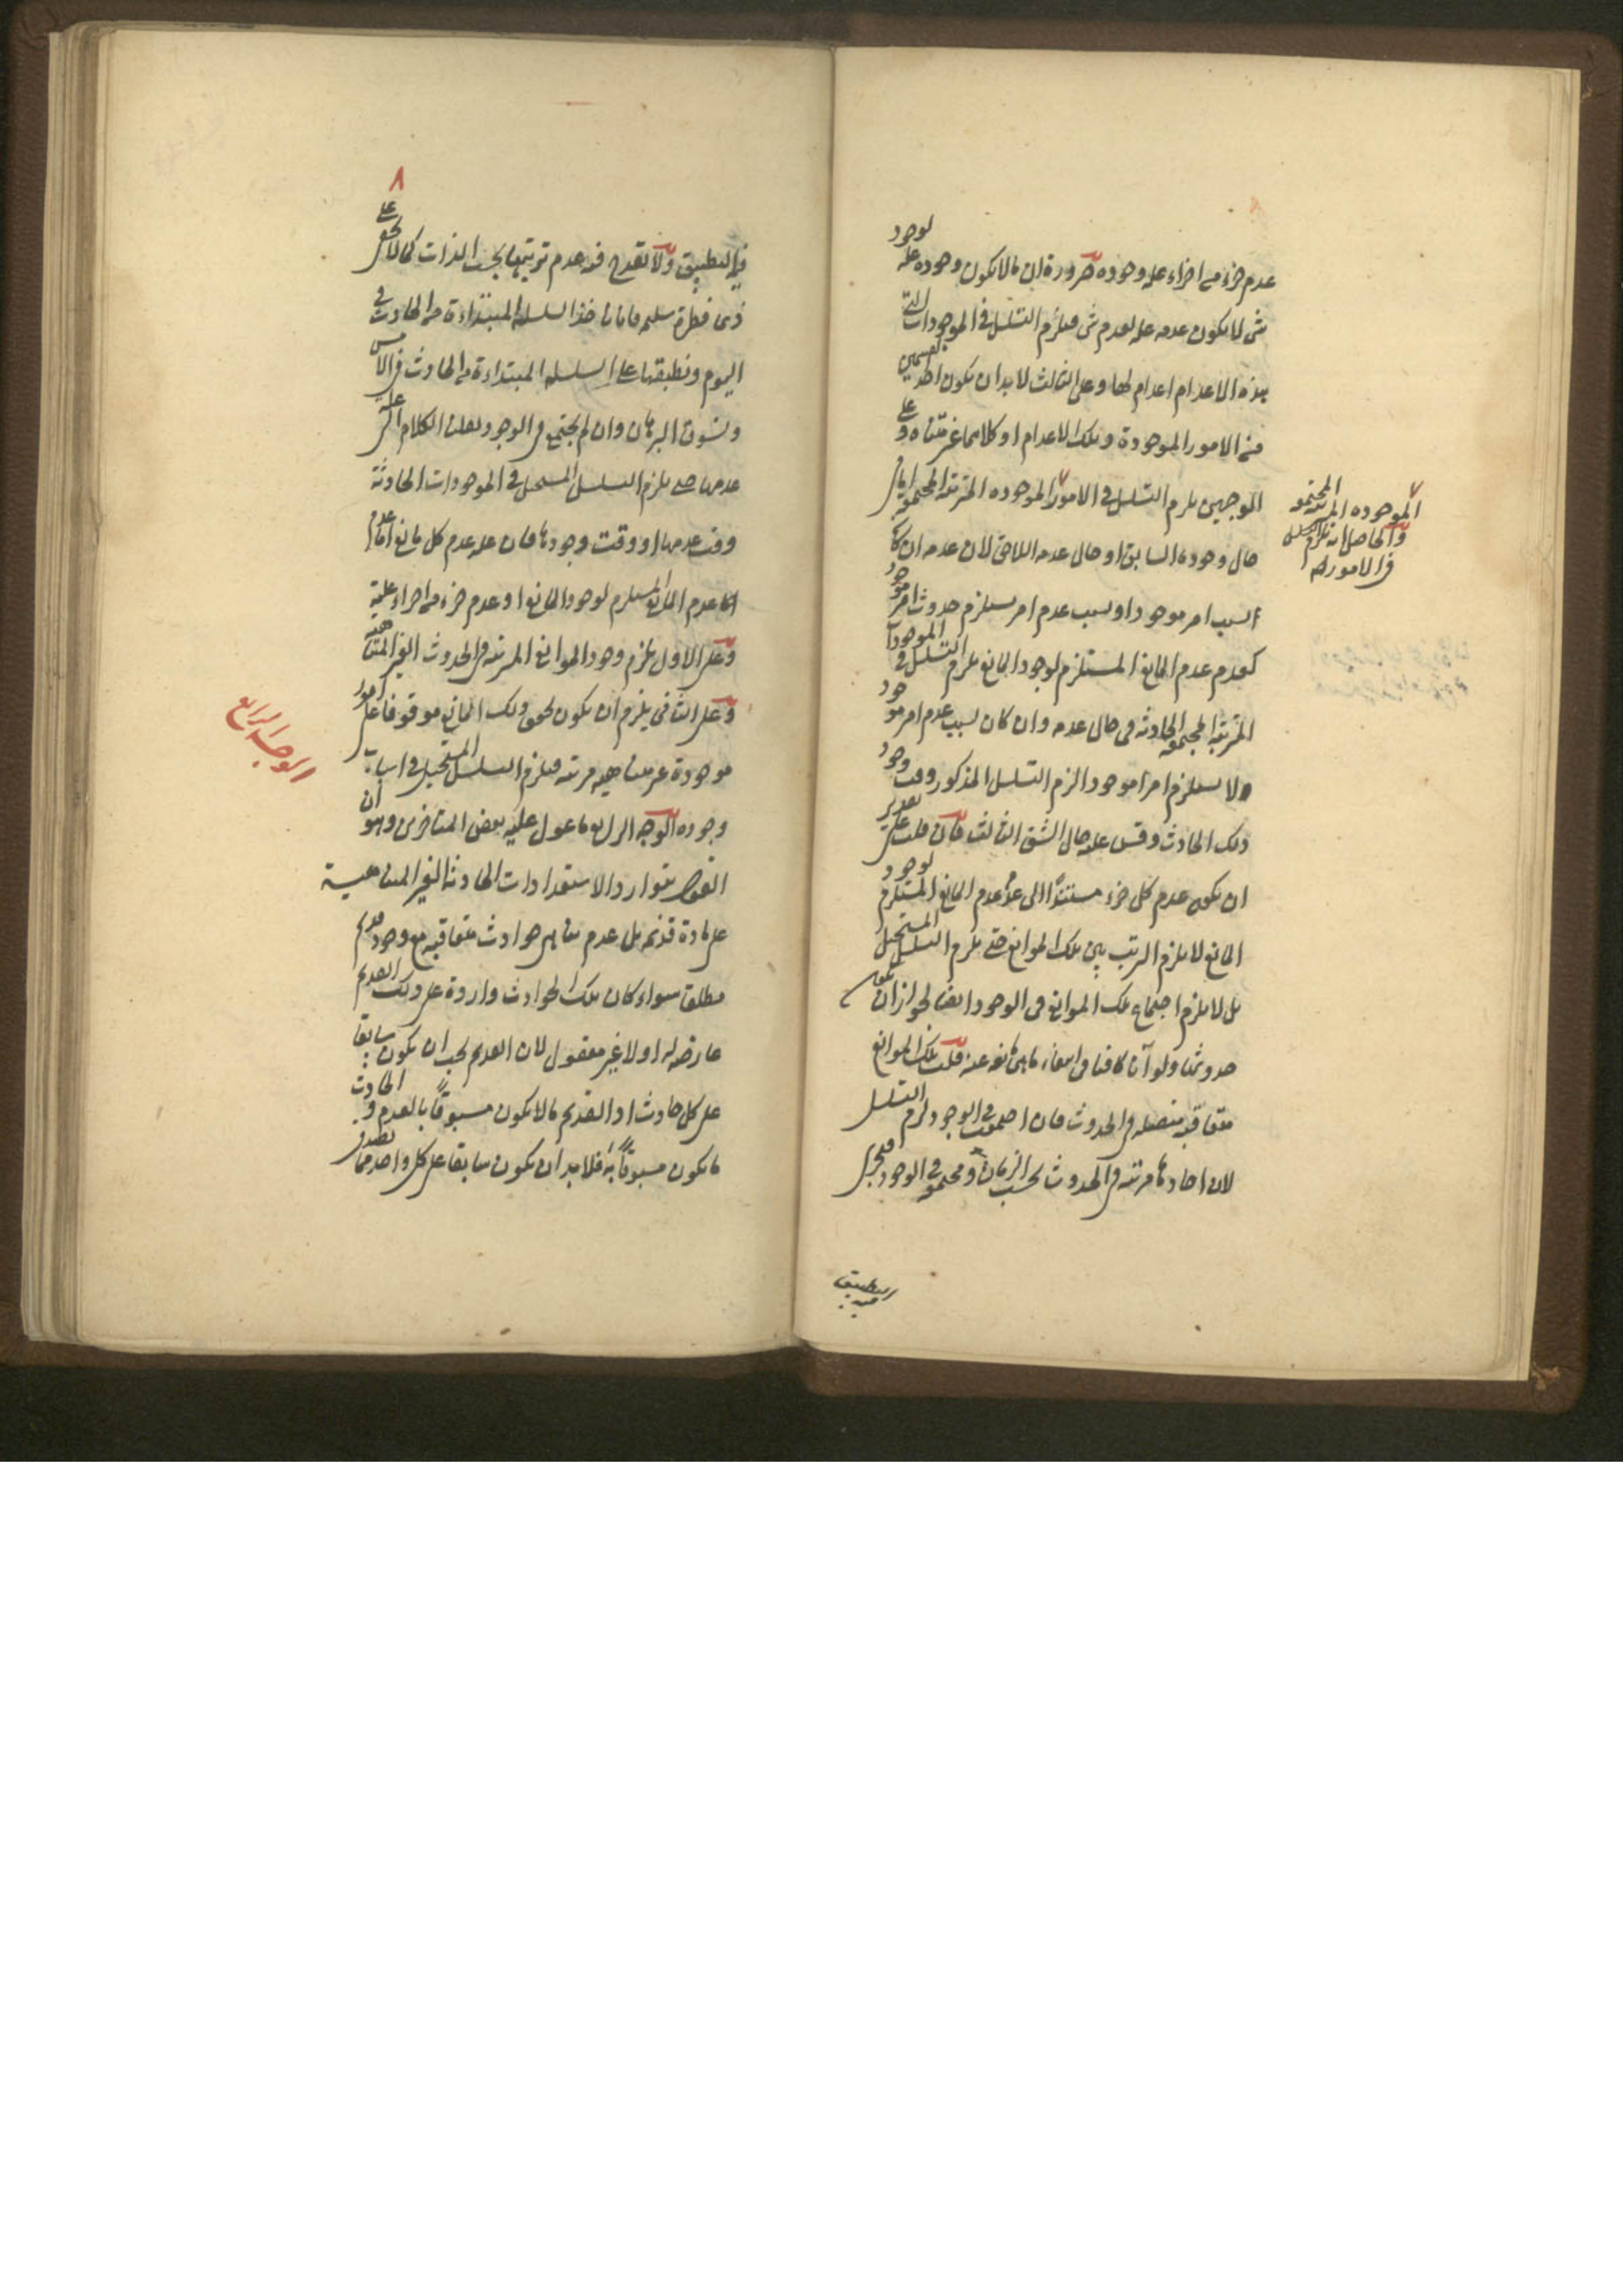 عدم جزء من اجزاء علة وجوده ضرورة ان ما لا يكون وجوده علة لوجود
شئ لا يكون عدمه علة لعدم شئ فيلزم التسلسل في الموجودات التي
هذه الاعدام اعدام لها وعلى الثالث لا بد ان يكون احد القسمين
من الامور الموجودة وتلك الاعدام او كلاهما غير متناه وعلى
الوجهين يلزم التسلسل في الامور الموجوده المترتبة المجتمعة اما في
حال وجوده السابق او حال عدمه اللاحق لان عدمه ان كان
بسبب امر موجود او بسبب عدم امر يستلزم حدوث امر موجود
كعدم عدم المانع المستلزم لوجود المانع يلزم التسلسل في الموجودات
المترتبة المجتمعة الحادثة في حال عدمه وان كان بسبب عدم امر موجود
ولا يستلزم امرا موجودا لزم التسلسل المذكور وقت وجود
ذلك الحادث وقس عليه حال الشق الثالث فان قلت على تقدير
ان يكون عدم كل جزء مستندًا الى عدم عدم المانع المستلزم لوجود
المانع لا يلزم الترتب بين تلك الموانع حتى يلزم التسلسل المستحيل
بل لا يلزم اجتماع تلك الموانع في الوجود ايضا لجواز ان يكون
حدوثها ولو آنا كافيا في انتفاء ما هي مانعة عنه قلت تلك الموانع
متعاقبة متصلة في الحدوث فان اجتمعت في الوجود لزم التسلسل
لان احادها مرتبة في الحدوث بحسب الزمان ومجتمعة في الوجود فيجري
الموجوده المرتبة المجتمعة
والحاصل انه يلزم التسلسل
في الامور الخ
التطبيق
فيه
٨
فيه التطبيق ولا يقدح فيه عدم ترتبها بحسب الذات كما لا يخفى على
ذي فطرة سليمة فانا ناخذ السلسلة المبتداءة من الحادث في
اليوم ونطبقها على السلسلة المبتداءة من الحادث في الامس
ونسوق البرهان وان لم يجتمع في الوجود نقلنا الكلام الى علة
عدمها حتى يلزم التسلسل المستحيل في الموجودات الحادثة
وقت عدمها او وقت وجودها فان علة عدم كل مانع اما عدم
عدم المانع المستلزم لوجود المانع او عدم جزء من اجزاء علته
وعلى الاول يلزم وجود الموانع المرتبة في الحدوث الغير المتناهية
وعلى الثاني يلزم ان يكون تحقق ذلك المانع موقوفا على امور
موجودة غير متناهية مرتبة فيلزم التسلسل المستحيل في اسباب
وجوده الوجه الرابع ما عول عليه بعض المتاخرين وهو ان
القول بتوارد الاستعدادات الحادثة الغير المتناهية
على مادة قديمة بل عدم تناهي حوادث متعاقبة مع وجود قديم
مطلقا سواء كان تلك الحوادث واردة على ذلك القديم
عارضة له او لا غير معقول لان القديم يجب ان يكون سابقا
على كل حادث اذ القديم ما لا يكون مسبوقًا بالعدم والحادث
ما يكون مسبوقًا به فلا بد ان يكون سابقا على كل واحد مما يصدق
الوجه الرابع